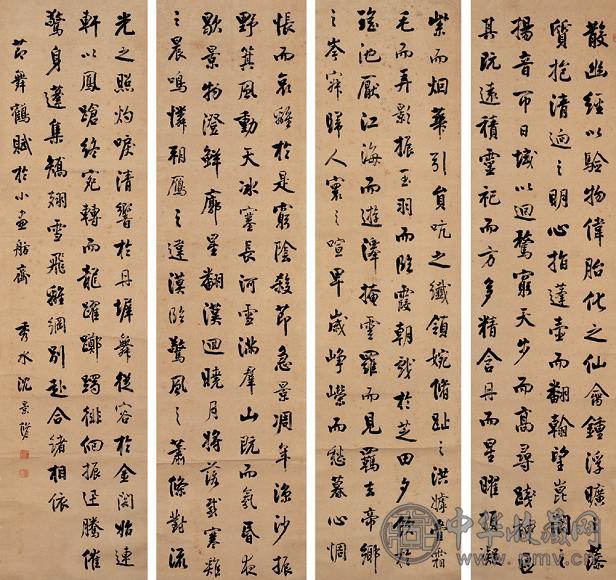 散幽經以驗物偉胎化之仙禽鍾浮曠之藻
質抱清迥之明心指蓬壺而翻翰望崑閬而
揚音帀日域以迴騖窮天步而高尋踐神區
其既遠積靈祀而方多精含丹而星曜頂凝
紫而烟華引員吭之纖領婉脩趾之洪姱疊霜
毛而弄影振玉羽而臨霞朝戲於芝田夕飲於
瑤池厭江海而遊澤掩雲羅而見羈去帝鄉
之岑寂歸人寰之喧卑歲崢嶸而愁暮心惆
悵而哀離於是窮陰殺節急景凋年涼沙振
野箕風動天冰塞長河雪滿羣山既而氛昏夜
歇景物澄鮮廓星翻漢迴曉月將落感寒雞
之晨鳴憐朔雁之違漠臨驚風之蕭條對流
光之照灼唳清響於丹墀舞從容於金閣始連
軒以鳳蹌終宛轉而龍躍躑躅徘徊振迅騰催
驚身蓬集矯翅雪飛離綱別赴合緒相依
節舞鶴賦於小畫舫齋 秀水沈景脩
中华收藏网
www.sc001.com.cn